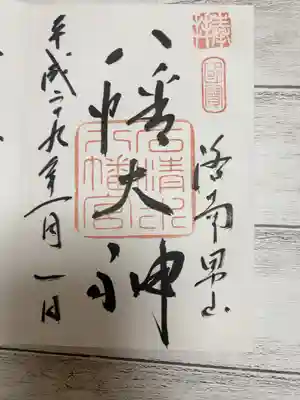 奉拝
國寶
洛南男山
八幡大神
石清水八幡宮
平成二十九年一月一日